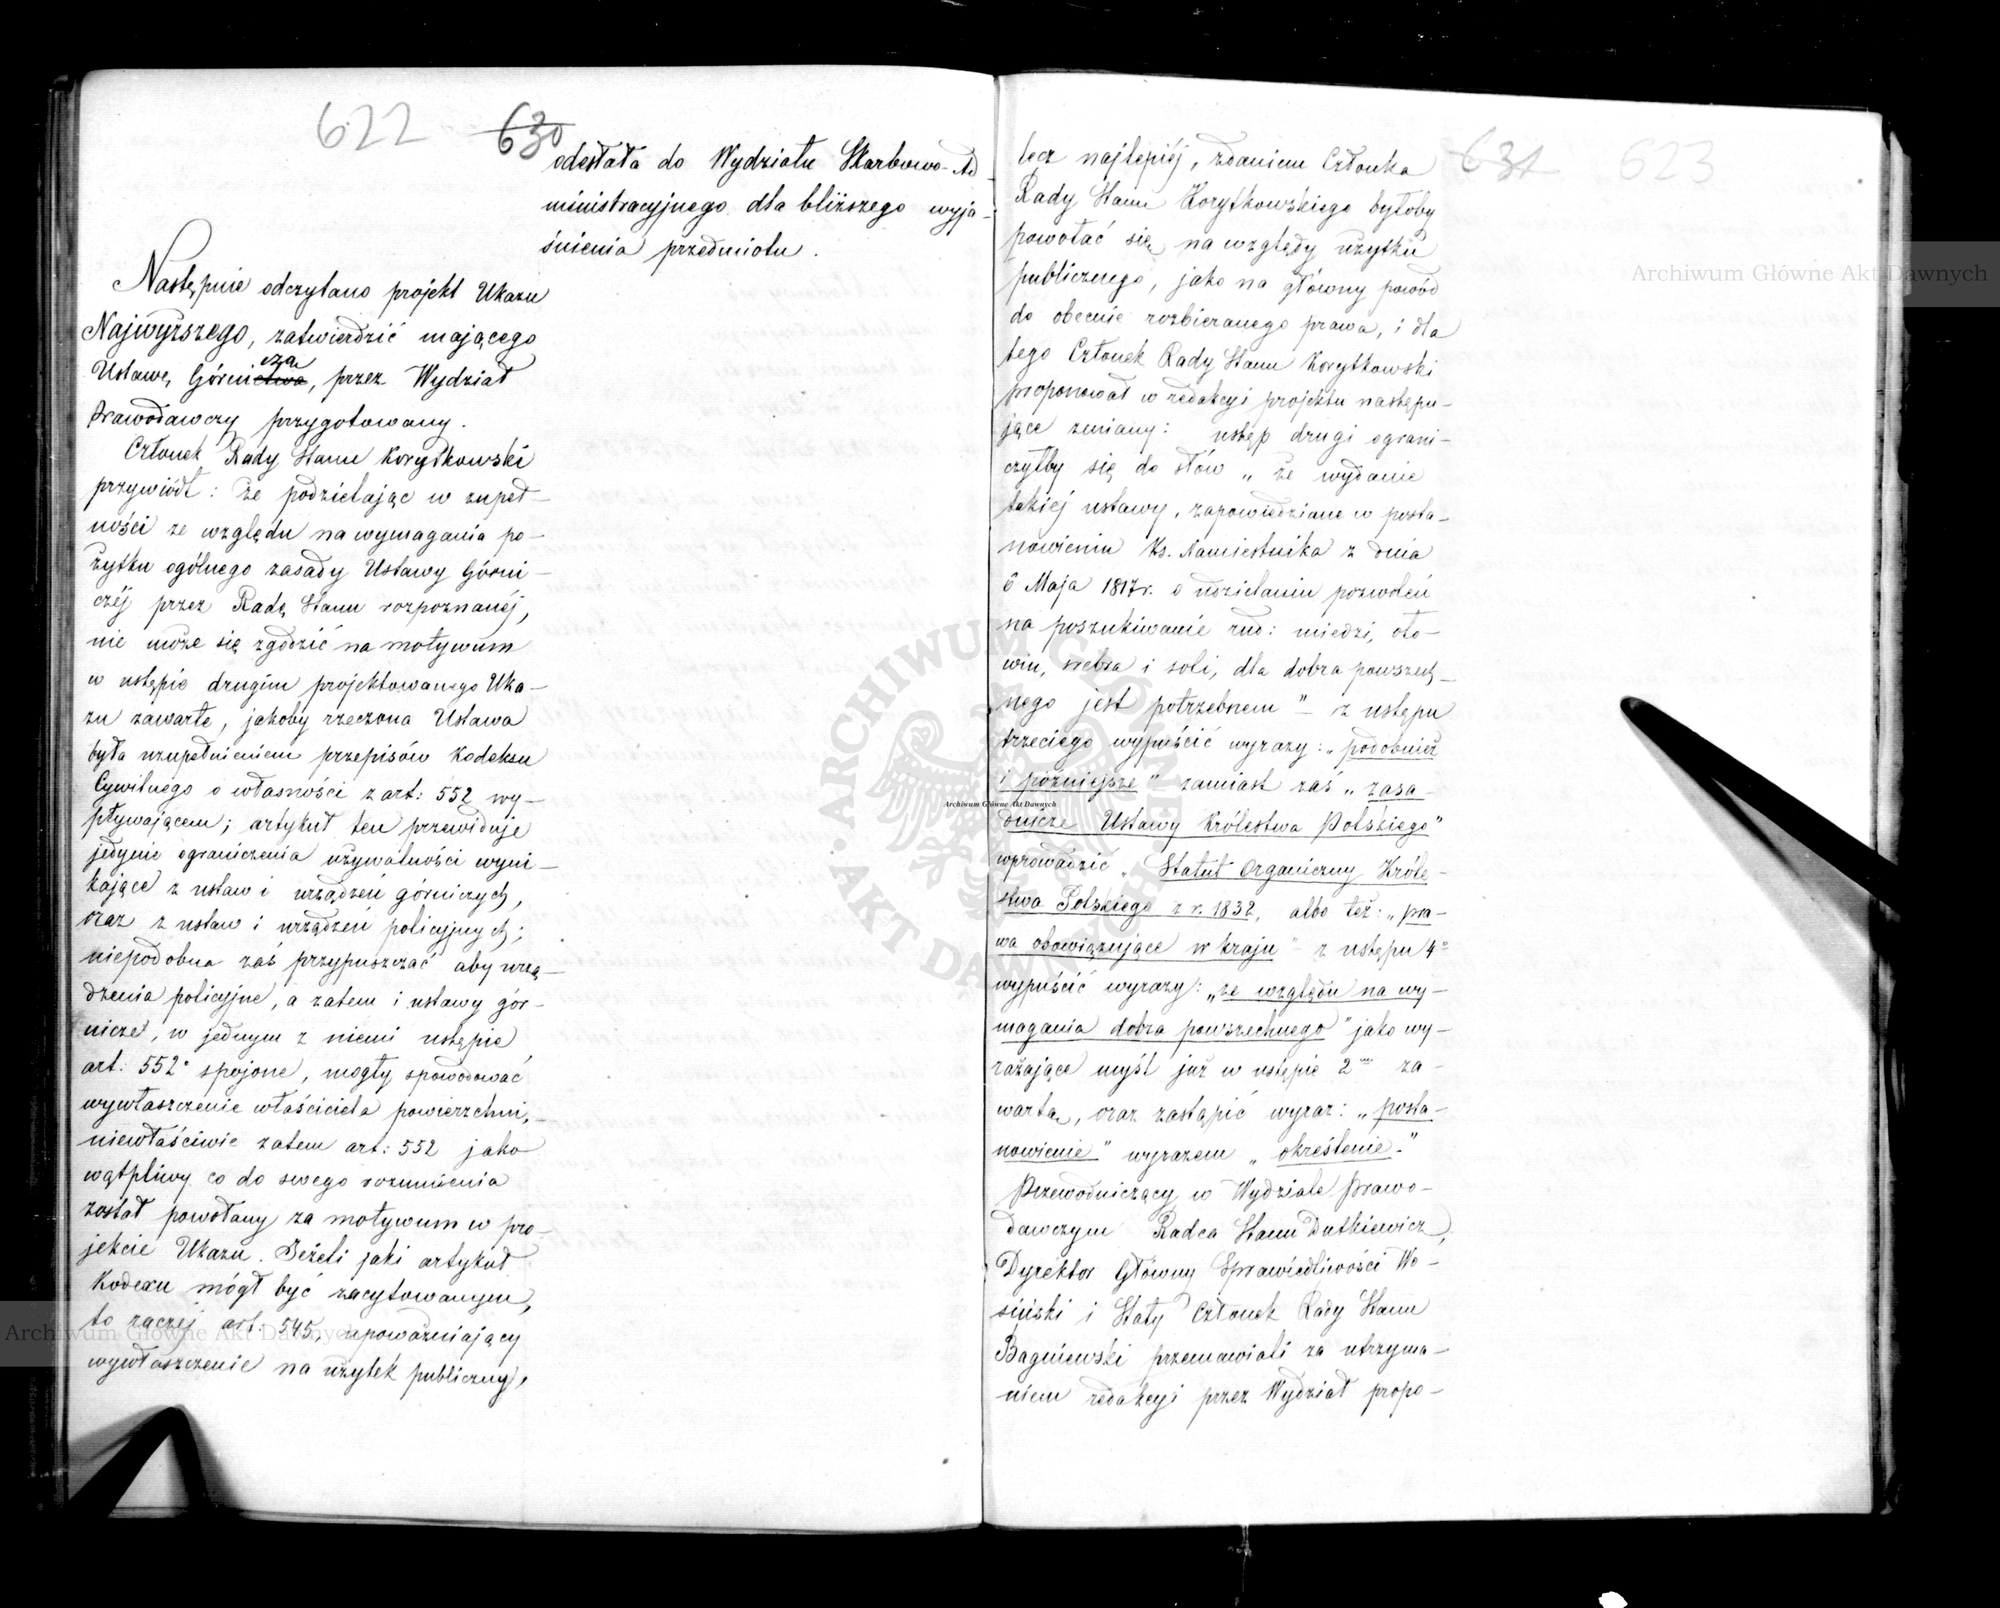 622 630
odesłała do Wydziału Skarbowo-Ad-
ministracyjnego dla bliższego wyja-
śnienia przedmiotu.
Następnie odczytano projekt Ukazu
Najwyższego, zatwierdzić mającego
Ustawę Górnictwa cza, przez Wydział
Prawodawczy przygotowany.
Członek Rady Stanu Korytkowski
przywiódł: że podzielając w zupeł-
ności ze względu na wymagania po-
żytku ogólnego zasady Ustawy Górni-
czéj przez Radę Stanu rozpoznanéj,
nie może się zgodzić na motywum
w ustępie drugim projektowanego Uka-
zu zawarte, jakoby rzeczona Ustawa
była uzupełnieniem przepisów Kodeksu
Cywilnego o własności z art: 552 wy-
pływającem; artykuł ten przewiduje
jedynie ograniczenia używalności wyni-
kające z ustaw i urządzeń górniczych,
oraz z ustaw i urządzeń policyjnych;
niepodobna zaś przypuszczać aby urzą-
dzenia policyjne, a zatem i ustawy gór-
nicze, w jednym z niemi ustępie
art: 552° spojone, mogły spowodować
wywłaszczenie właściciela powierzchni,-
niewłaściwie zatem art: 552 jako
wątpliwy co do swego rozumienia
został powołany za motywum w pro-
jekcie Ukazu. Jeżeli jaki artykuł
Kodexu mógł być zacytowanym,
to raczéj art: 545, upoważniający
wywłaszczenie na użytek publiczny,
631 623
lecz najlepiéj, zdaniem Członka
Rady Stanu Korytkowskiego byłoby
powołać się na względy użytku
publicznego, jako na główny powód
do obecnie rozbieranego prawa, i dla
tego Członek Rady Stanu Korytkowski
proponował w redakcyi projektu następu-
jące zmiany: ustęp drugi ograni-
czyłby się do słów „że wydanie
takiéj ustawy, zapowiedziane w posta-
nowieniu Ks. Namiestnika z dnia
6 Maja 1817 r. o udzielaniu pozwoleń
na poszukiwanie rud: miedzi, oło-
wiu, srebra i soli, dla dobra powszech-
nego jest potrzebnem" – z ustępu
trzeciego wypuścić wyrazy: „podobnież
i późniejsze" zamiast zaś „zasa-
dnicze Ustawy Królestwa Polskiego"
wprowadzić „Statut Organiczny Króle-
stwa Polskiego z r. 1832, albo też: „pra-
wa obowiązujące w kraju" z ustępu 4°
wypuścić wyrazy: „ze względu na wy-
magania dobra powszechnego" jako wy-
rażające myśl już w ustępie 2m za-
wartą, oraz zastąpić wyraz: „posta-
nowienie" wyrazem „określenie."
Przewodniczący w Wydziale Prawo-
dawczym Radca Stanu Dutkiewicz,
Dyrektor Główny Sprawiedliwości Wo-
siński i Stały Członek Rady Stanu
Bagniewski przemawiali za utrzyma-
niem redakcyi przez Wydział propo-
Archiwum Główne Akt Dawnych
Archiwum Główne Akt Dawnych
Archiwum Główne Akt Dawnych
ARCHIWUM GŁÓWNE AKT DAWNYCH